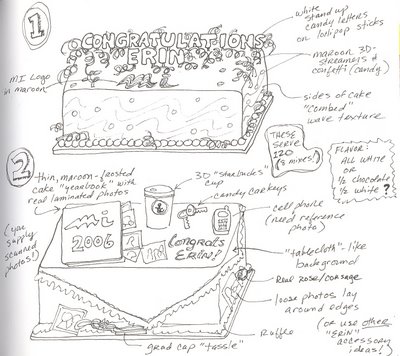 1
CONGRATULATIONS
ERIN
mi
MI Logo
in maroon
white
stand up
candy letters
on lolipop sticks
maroon 3D-
streamers &
confetti (candy)
sides of cake
"combed"
wave texture
THESE
SERVE
120
FLAVOR:
ALL WHITE
OR
1/2 chocolate
1/2 white ?
2
thin, maroon-frosted
cake "yearbook" with
real laminated photos
3D "starbucks"
cup
candy car keys
cell phone
(need reference
photo)
(you
supply
scanned
photos!)
mi
2006
Congrats
ERIN!
"tablecloth"-like
background
Real rose/corsage
loose photos lay
around edges
(or use other
"ERIN"
accessory
ideas!)
Ruffle
grad cap "tassle"